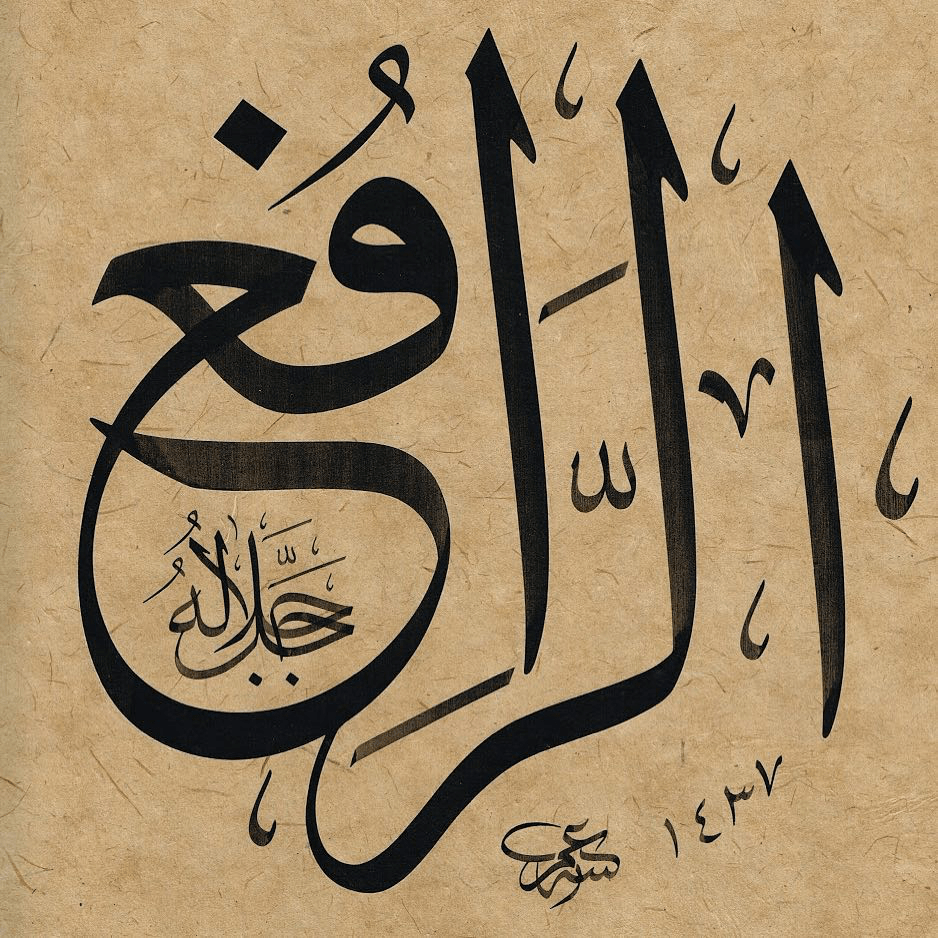 الرَّافِعُ
جَلَّ جَلَالُهُ
١٤٣٧